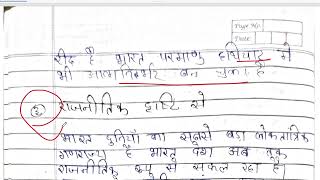 Page No.
Date
रीढ़ है भारत परमाणु हथियार में
भी आत्मनिर्भर बन चुका है
② राजनीतिक दृष्टि से
भारत दुनियाँ का सबसे बड़ा लोकतांत्रिक
गणराज्य है भारत देश अब तक
राजनीतिक रूप से सफल रहा है।